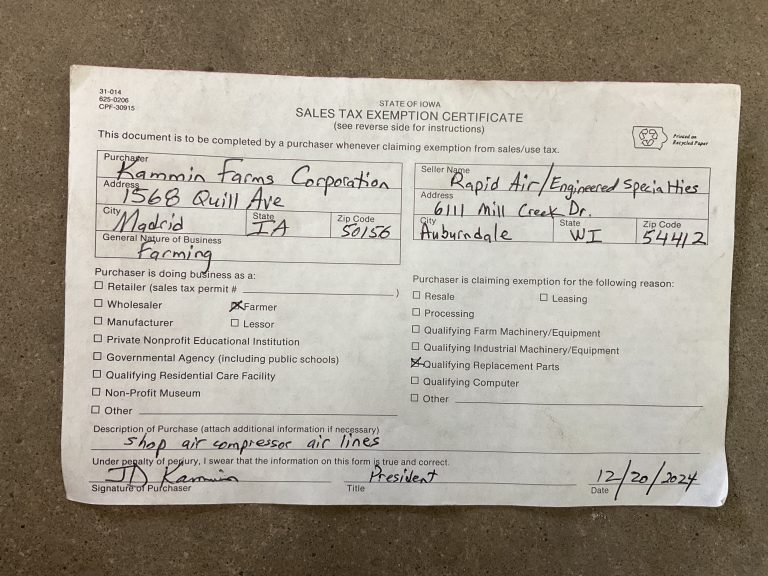 31-014
625-0206
CPF-30915
STATE OF IOWA
SALES TAX EXEMPTION CERTIFICATE
(see reverse side for instructions)
Printed on
Recycled Paper
This document is to be completed by a purchaser whenever claiming exemption from sales/use tax.
Purchaser
Kammin Farms Corporation
Address
1568 Quill Ave
City State Zip Code
Madrid IA 50156
General Nature of Business
Farming
Seller Name
Rapid Air/Engineered Specialties
Address
6111 Mill Creek Dr.
City State Zip Code
Auburndale WI 54412
Purchaser is doing business as a:
Retailer (sales tax permit # )
Wholesaler Farmer
Manufacturer Lessor
Private Nonprofit Educational Institution
Governmental Agency (including public schools)
Qualifying Residential Care Facility
Non-Profit Museum
Other
Purchaser is claiming exemption for the following reason:
Resale Leasing
Processing
Qualifying Farm Machinery/Equipment
Qualifying Industrial Machinery/Equipment
Qualifying Replacement Parts
Qualifying Computer
Other
Description of Purchase (attach additional information if necessary)
shop air compressor air lines
Under penalty of perjury, I swear that the information on this form is true and correct.
JD Kammin President 12/20/2024
Signature of Purchaser Title Date